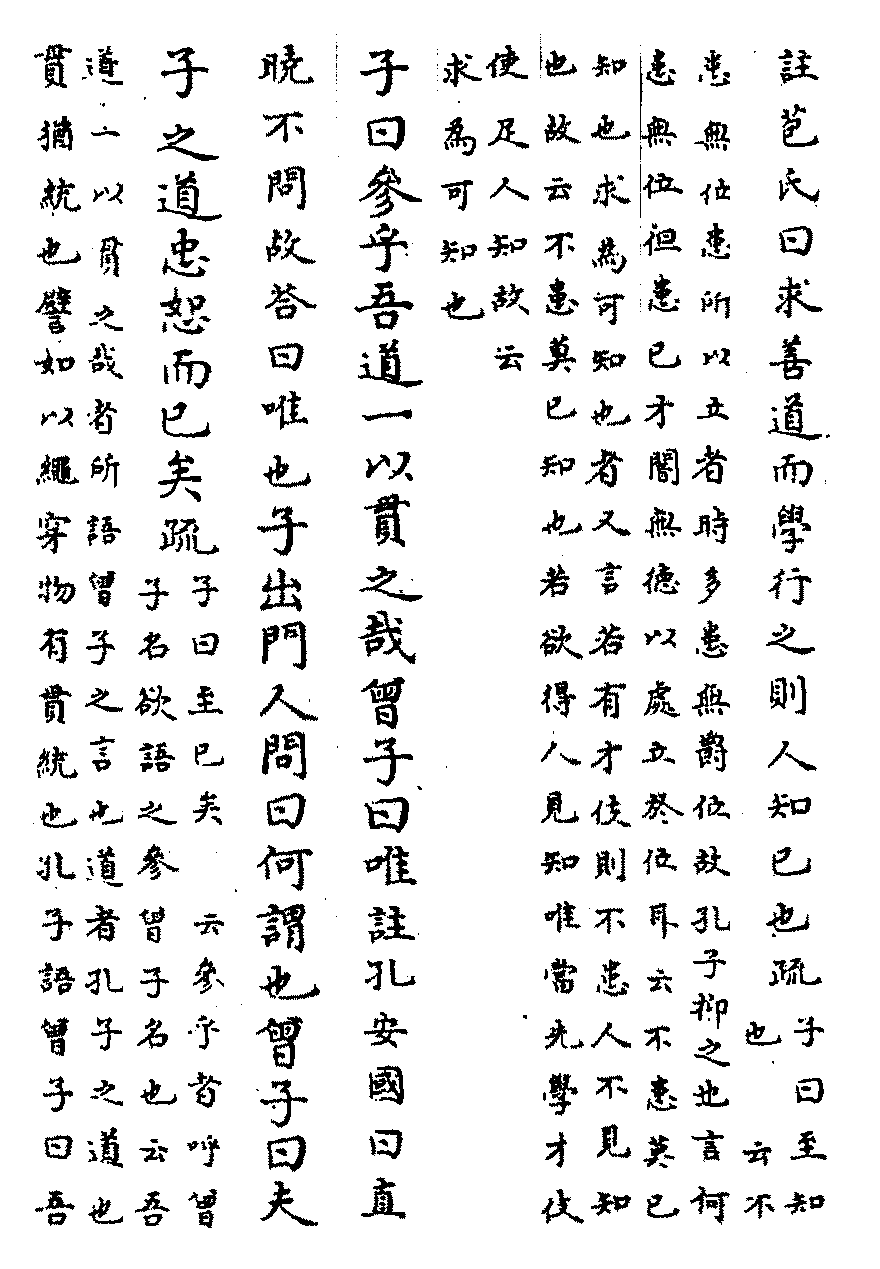 註苞氏曰求善道而學行之則人知已也疏
子曰至知
也　云不
患無位患所以立者時多患無爵位故孔子抑之也言何
患無位但患已才闇無德以處立於位耳云不患莫已
知也求為可知也者又言若有才伎則不患人不見知
也故云不患莫已知也若欲得人見知唯當先學才伎
使足人知故云
求為可知也
子曰參乎吾道一以貫之哉曾子曰唯註孔安國曰直
曉不問故荅曰唯也子出門人問曰何謂也曾子曰夫
子之道忠恕而已矣疏
子曰至已矣　云參乎者呼曾
子名欲語之參曾子名也云吾
道一以貫之哉者所語曾子之言也道者孔子之道也
貫猶統也譬如以繩穿物有貫統也孔子語曾子曰吾